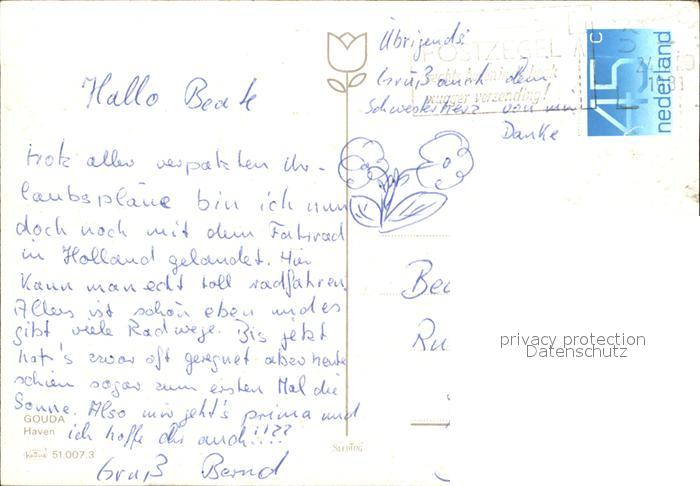 Hallo Beate
trotz aller verpatzten Ur-
laubspläne bin ich nun
doch noch mit dem Fahrrad
in Holland gelandet. Hier
kann man echt toll radfahren.
Alles ist schön eben und es
gibt viele Radwege. Bis jetzt
hat's zwar oft geregnet aber heute
schien sogar zum ersten Mal die
Sonne. Also mir geht's prima und
ich hoffe dir auch!!??
Gruß Bernd
GOUDA
Haven
51.007.3
Übrigends:
Gruß auch dem
Schwesterherz von mir
Danke
POSTZEGEL
45 c
nederland
Be
Ru
privacy protection
Datenschutz